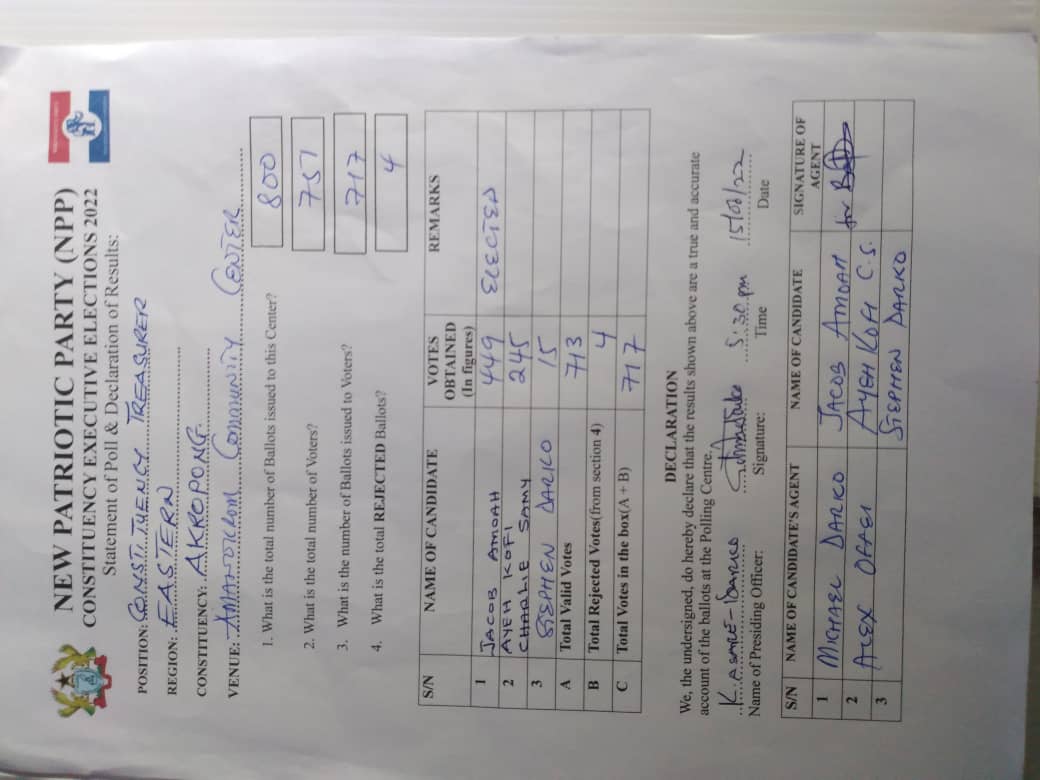 NEW PATRIOTIC PARTY (NPP)
CONSTITUENCY EXECUTIVE ELECTIONS 2022
Statement of Poll & Declaration of Results:
POSITION: CONSTITUENCY TREASURER
REGION: EASTERN
CONSTITUENCY: AKROPONG
VENUE: AMANOKROM COMMUNITY CENTER
1. What is the total number of Ballots issued to this Center? 800
2. What is the total number of Voters? 757
3. What is the number of Ballots issued to Voters? 717
4. What is the total REJECTED Ballots? 4
S/N NAME OF CANDIDATE VOTES OBTAINED (In figures) REMARKS
1 JACOB AMOAH 449 ELECTED
2 AYEH KOFI CHARLIE SAMY 245
3 STEPHEN DARKO 15
A Total Valid Votes 713
B Total Rejected Votes(from section 4) 4
C Total Votes in the box(A + B) 717
DECLARATION
We, the undersigned, do hereby declare that the results shown above are a true and accurate
account of the ballots at the Polling Centre.
K. ASARE-DARKO 5:30 pm 15/05/22
Name of Presiding Officer: Signature: Time Date
S/N NAME OF CANDIDATE'S AGENT NAME OF CANDIDATE SIGNATURE OF AGENT
1 MICHAEL DARKO JACOB AMOAH for
2 ALEX OFFEI AYEH KOFI C.S.
3 STEPHEN DARKO